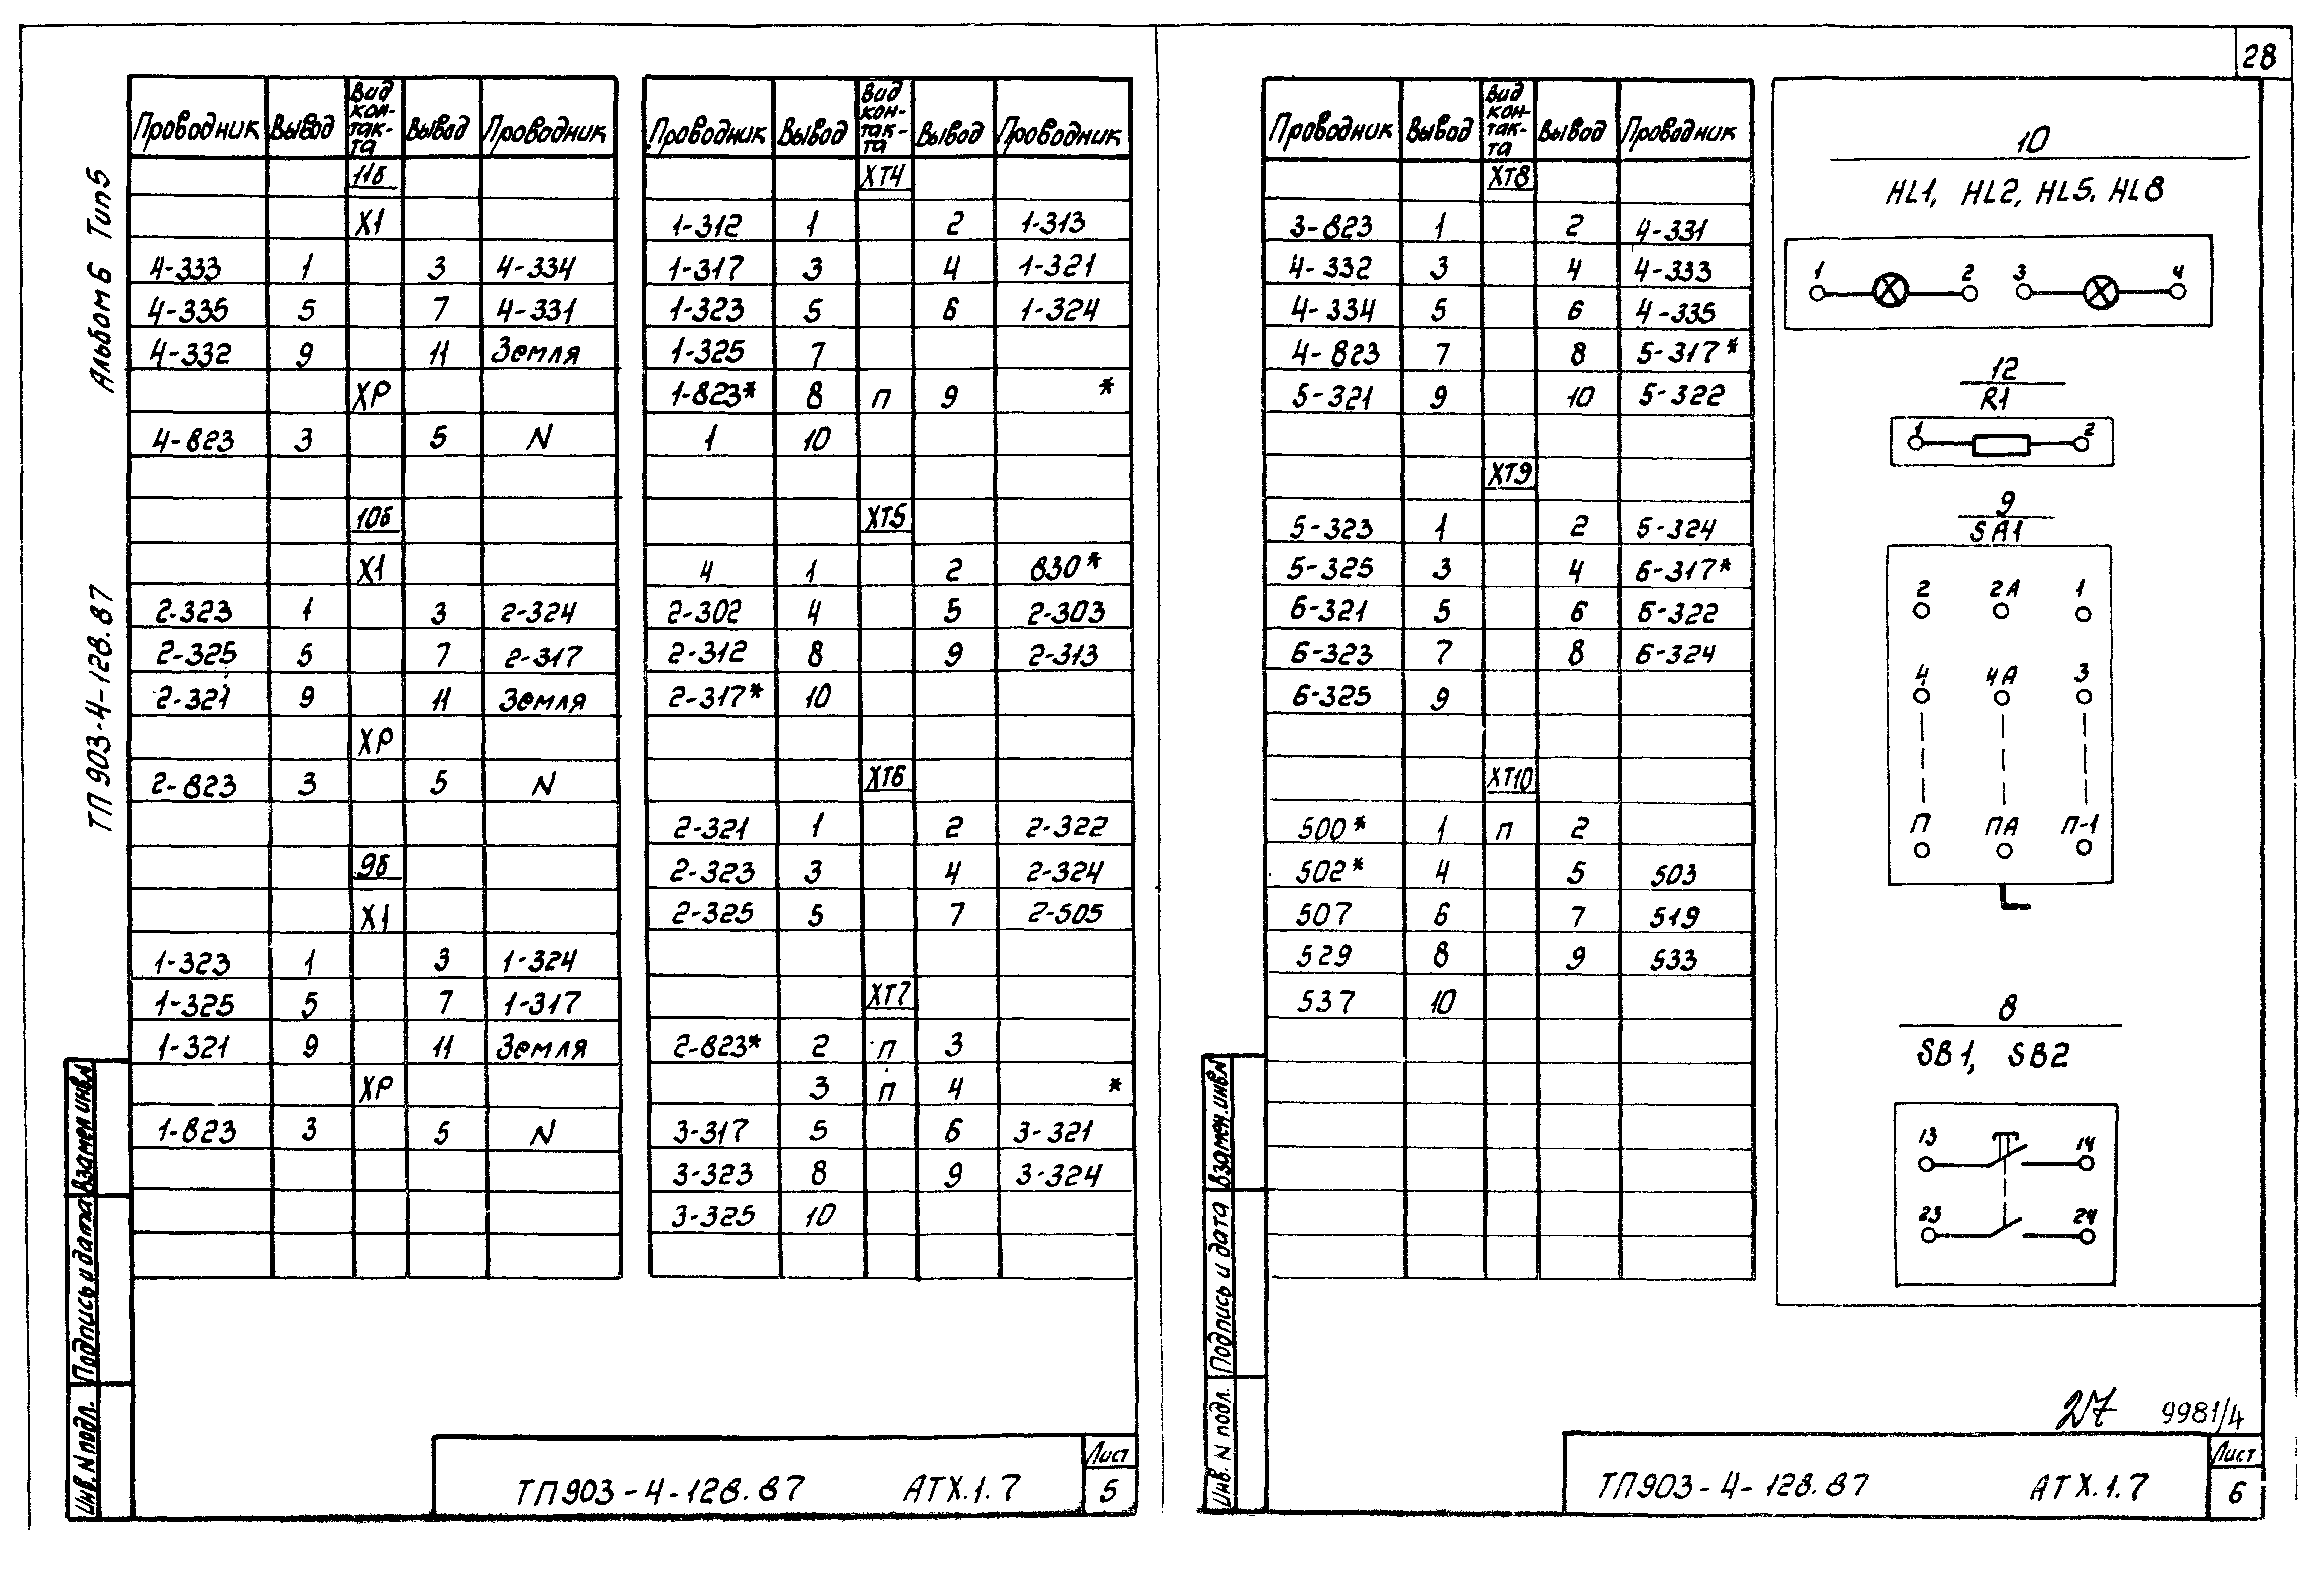 28
Альбом 6 Тип 5
ТП 903-4-128.87
Проводник Вывод Вид кон-так-та Вывод Проводник
11б
X1
4-333 1 3 4-334
4-335 5 7 4-331
4-332 9 11 Земля
XP
4-823 3 5 N
10б
X1
2-323 1 3 2-324
2-325 5 7 2-317
2-321 9 11 Земля
XP
2-823 3 5 N
9б
X1
1-323 1 3 1-324
1-325 5 7 1-317
1-321 9 11 Земля
XP
1-823 3 5 N
Проводник Вывод Вид кон-так-та Вывод Проводник
XT4
1-312 1 2 1-313
1-317 3 4 1-321
1-323 5 6 1-324
1-325 7
1-823* 8 п 9 *
1 10
XT5
4 1 2 830*
2-302 4 5 2-303
2-312 8 9 2-313
2-317* 10
XT6
2-321 1 2 2-322
2-323 3 4 2-324
2-325 5 7 2-505
XT7
2-823* 2 п 3
3 п 4 *
3-317 5 6 3-321
3-323 8 9 3-324
3-325 10
Взамен инв.N
Подпись и дата
Инв. N подл.
ТП903-4-128.87 АТХ.1.7
Лист
5
Проводник Вывод Вид кон-так-та Вывод Проводник
XT8
3-823 1 2 4-331
4-332 3 4 4-333
4-334 5 6 4-335
4-823 7 8 5-317*
5-321 9 10 5-322
XT9
5-323 1 2 5-324
5-325 3 4 6-317*
6-321 5 6 6-322
6-323 7 8 6-324
6-325 9
XT10
500* 1 п 2
502* 4 5 503
507 6 7 519
529 8 9 533
537 10
10
HL1, HL2, HL5, HL8
1 2 3 4
12
R1
1 2
9
SA1
2 2А 1
4 4А 3
П ПА П-1
8
SB1, SB2
13 14
23 24
Взамен.инв.N
Подпись и дата
Инв. N подл.
27 9981/4
ТП903-4-128.87 АТХ.1.7
Лист
6